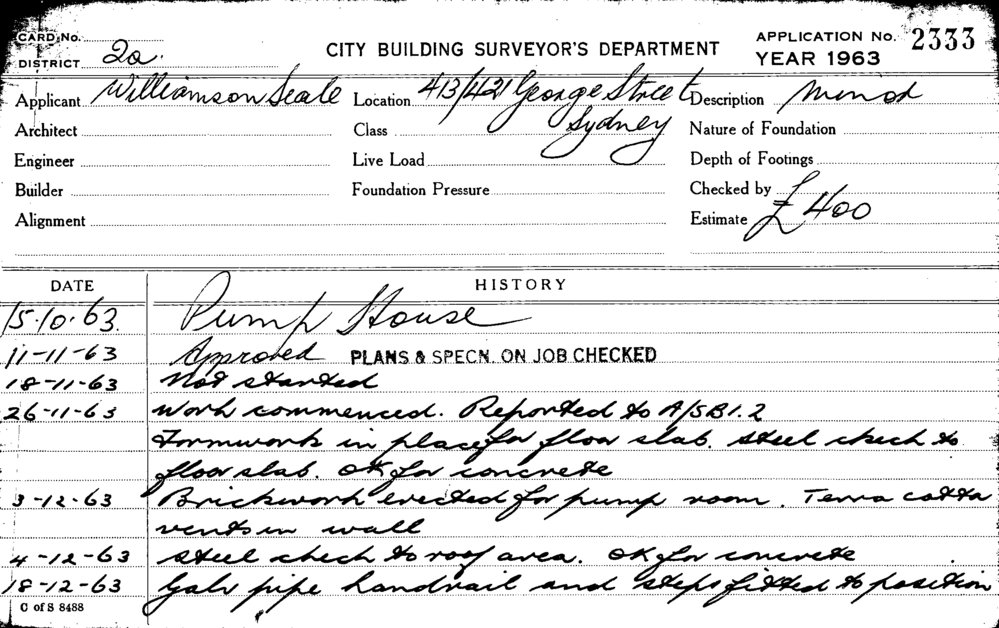 CARD No.
DISTRICT 2a.
CITY BUILDING SURVEYOR'S DEPARTMENT
APPLICATION No. 2333
YEAR 1963
Applicant Williamson Seale Location 413/421 George Street Description Minor
Sydney
Architect Class Nature of Foundation
Engineer Live Load Depth of Footings
Builder Foundation Pressure Checked by
Alignment Estimate £400
DATE HISTORY
15.10.63. Pump House
11-11-63 Approved PLANS & SPECN. ON JOB CHECKED
18-11-63 Not started
26-11-63 Work commenced. Reported to A/SB1.2
Formwork in place for floor slab. Steel check to
floor slab. OK for concrete
3-12-63 Brickwork erected for pump room. Terra cotta
vents in wall
4-12-63 Steel check to roof area. OK for concrete
18-12-63 Galv pipe handrail and steps fitted to position
C of S 8488